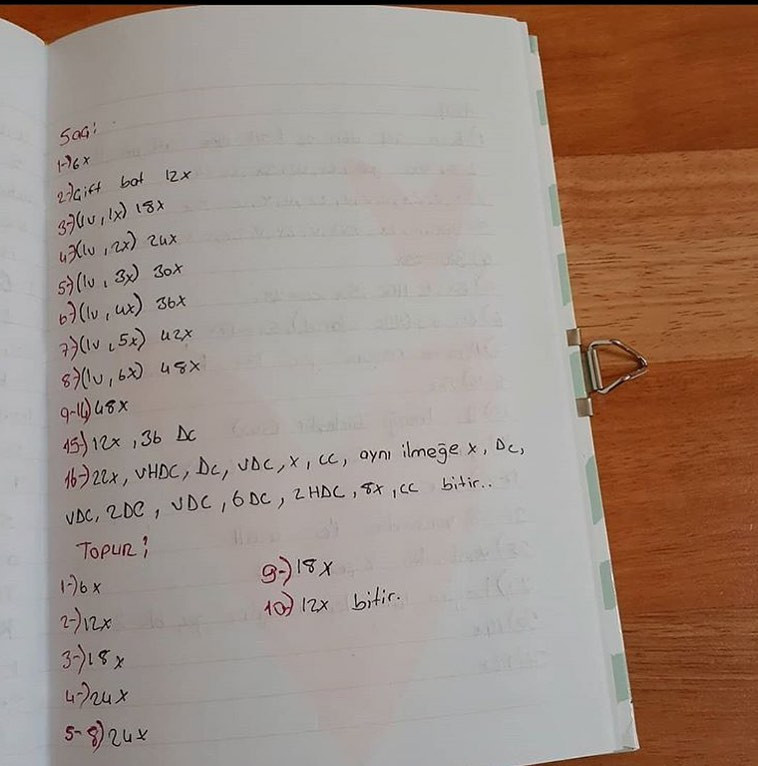 Saç:
1-) 6x
2-) Çift bat 12x
3-) (1v, 1x) 18x
4-) (1v, 2x) 24x
5-) (1v, 3x) 30x
6-) (1v, 4x) 36x
7-) (1v, 5x) 42x
8-) (1v, 6x) 48x
9-14) 48x
15-) 12x, 36 DC
16-) 22x, VHDC, DC, VDC, x, CC, aynı ilmeğe x, DC,
VDC, 2DC, VDC, 6DC, 2HDC, 8x, CC bitir..
TOPUZ:
1-) 6x
2-) 12x
3-) 18x
4-) 24x
5-8) 24x
9-) 18x
10-) 12x bitir.